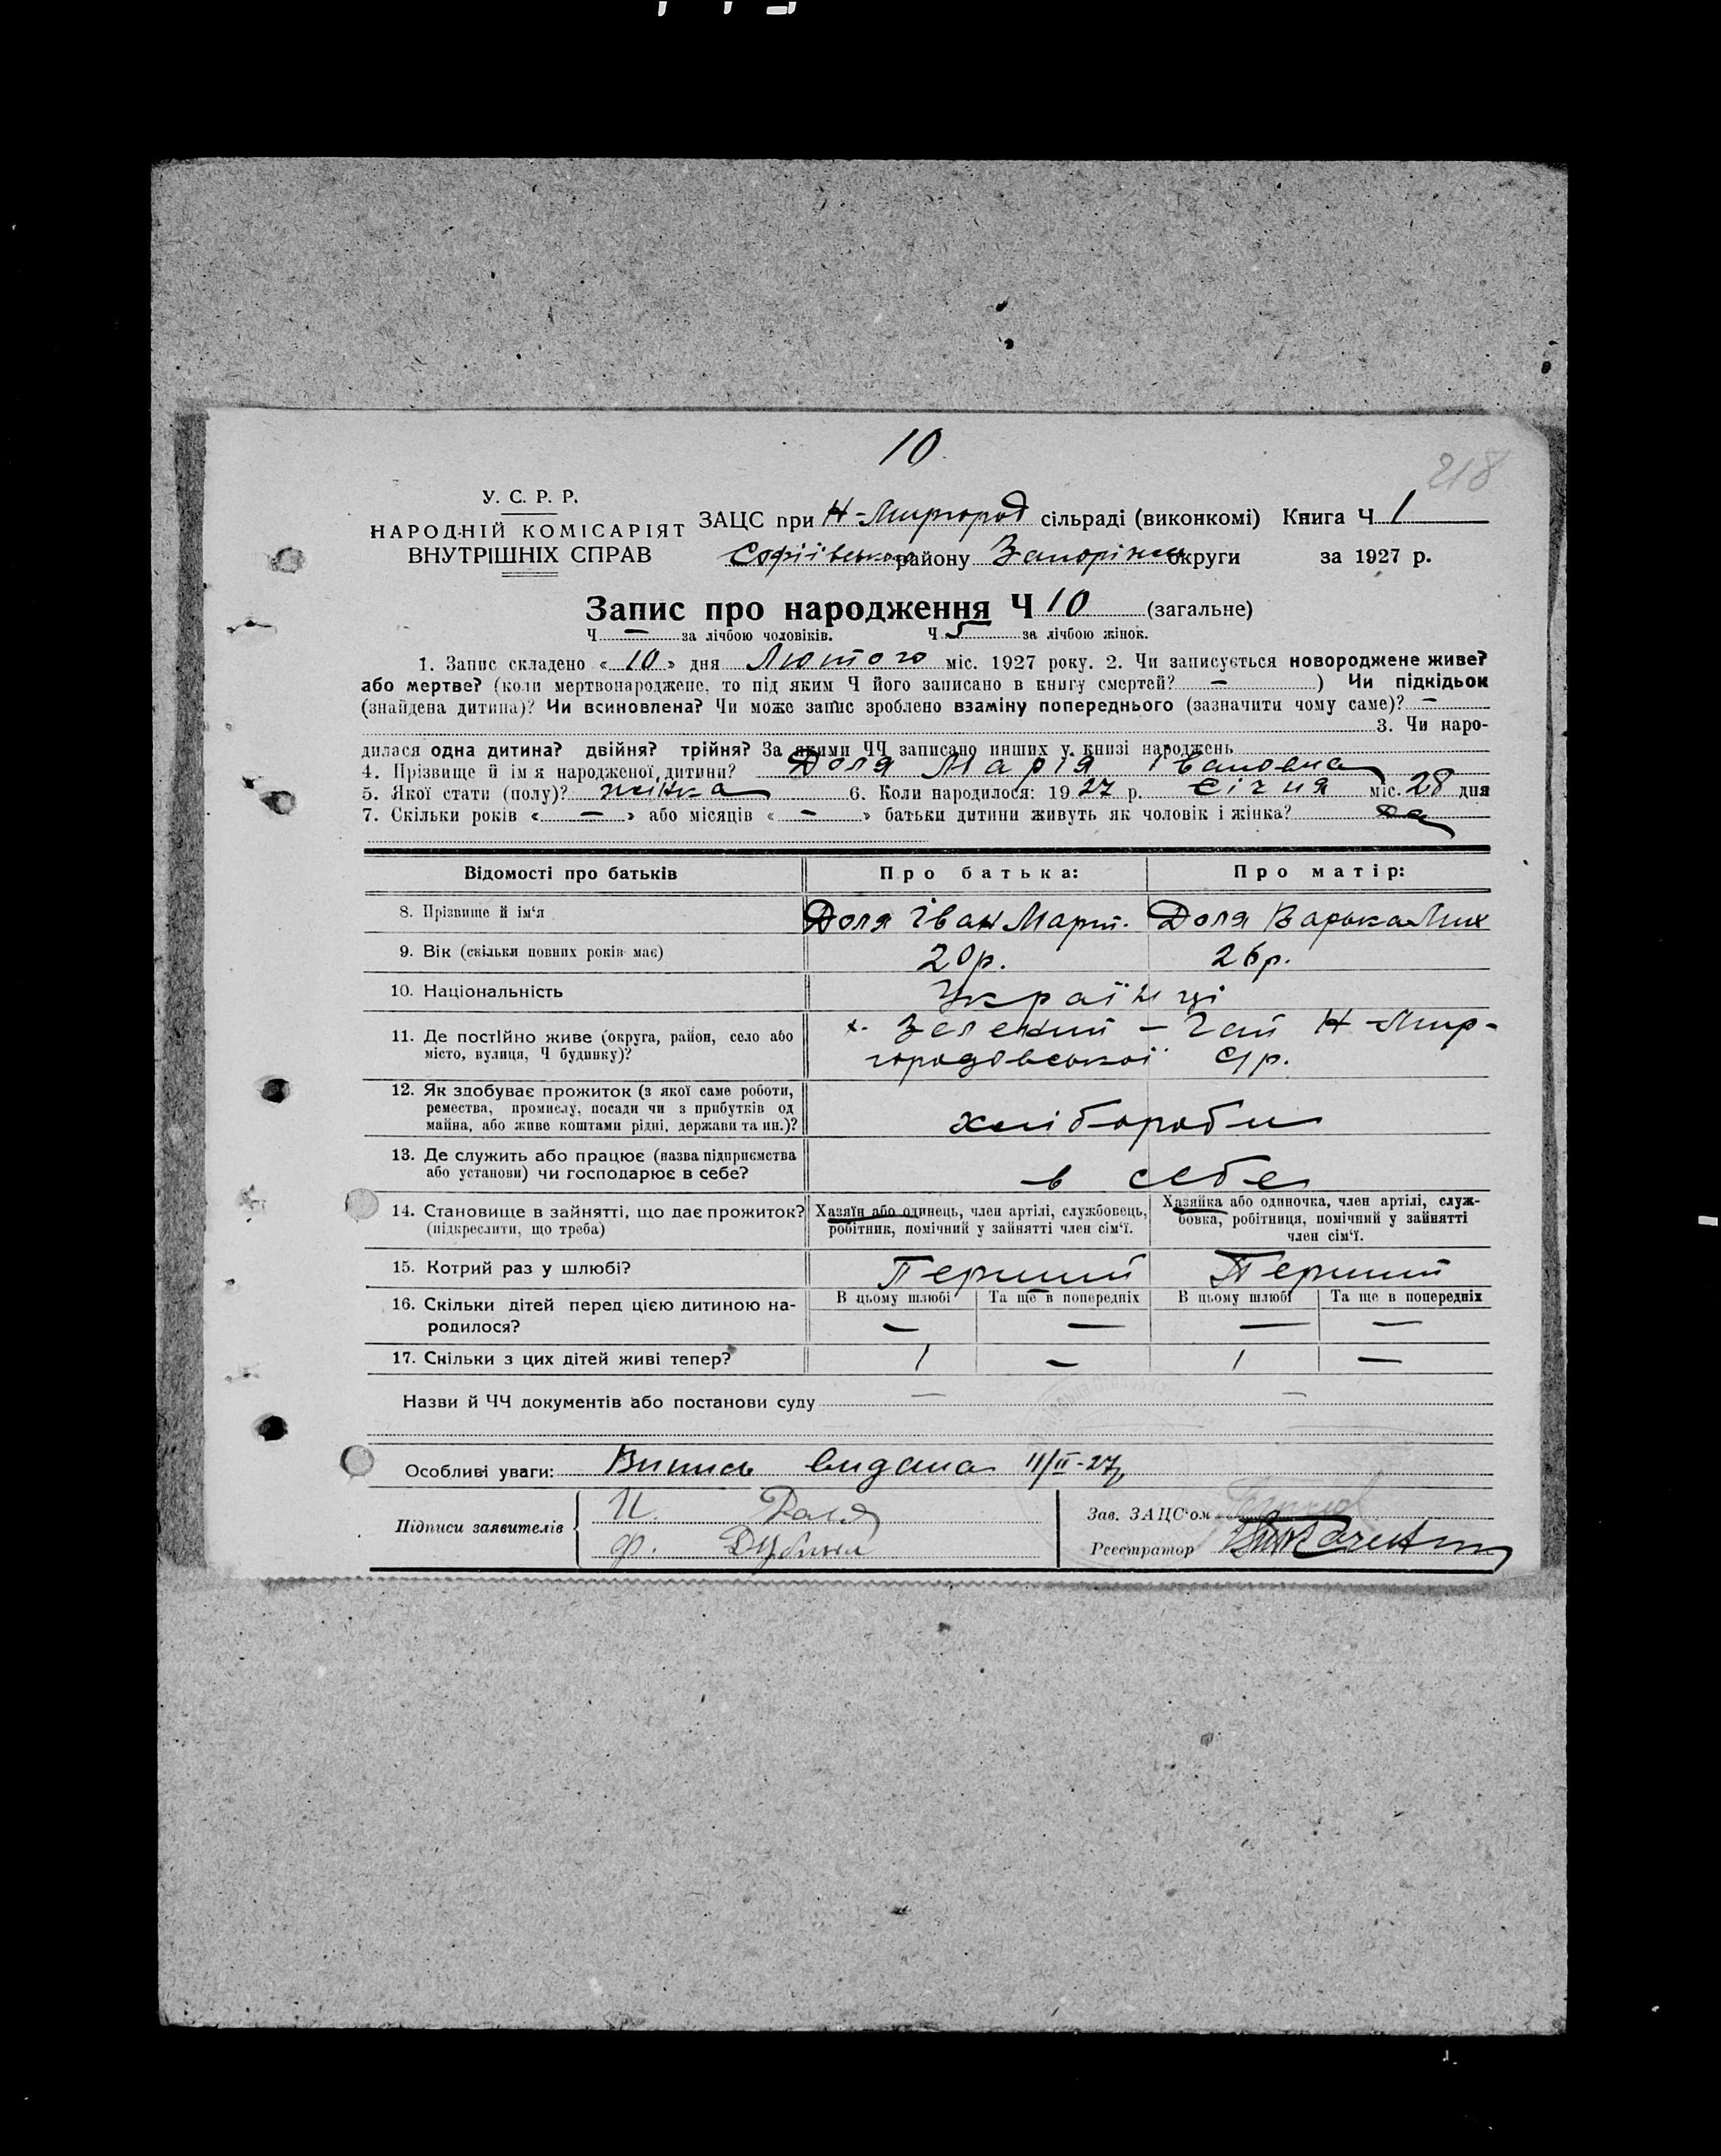 10
218
У. С. Р. Р.
НАРОДНІЙ КОМІСАРІЯТ
ВНУТРІШНІХ СПРАВ
ЗАЦС при Н-Миргород сільраді (виконкомі) Книга Ч 1
Софіївського району Запоріжськ округи за 1927 р.
Запис про народження Ч 10 (загальне)
Ч — за лічбою чоловіків. Ч 5 за лічбою жінок.
1. Запис складено « 10 » дня Лютого міс. 1927 року. 2. Чи записується новороджене живе?
або мертве? (коли мертвонароджене, то під яким Ч його записано в книгу смертей? — ) Чи підкідьок
(знайдена дитина)? Чи всиновлена? Чи може запис зроблено взаміну попереднього (зазначити чому саме)? —
3. Чи наро-
дилася одна дитина? двійня? трійня? За якими ЧЧ записано инших у книзі народжень
4. Прізвище й ім'я народженої дитини? Доля Марія Івановна
5. Якої стати (полу)? жінка 6. Коли народилося: 1927 р. Січня міс. 28 дня
7. Скільки років « — » або місяців « — » батьки дитини живуть як чоловік і жінка? Да
Відомості про батьків Про батька: Про матір:
8. Прізвище й ім'я Доля Іван Март. Доля Варька Мих
9. Вік (скільки повних років має) 20р. 26р.
10. Національність Українці
11. Де постійно живе (округа, район, село або
місто, вулиця, Ч будинку)?
х. Зелений – Гай Н-Мир-
городовської С/р.
12. Як здобуває прожиток (з якої саме роботи,
ремества, промислу, посади чи з прибутків од
майна, або живе коштами рідні, держави та ин.)?
хлібороби
13. Де служить або працює (назва підприємства
або установи) чи господарює в себе?
в себе
14. Становище в зайнятті, що дає прожиток?
(підкреслити, що треба)
Хазяїн або одинець, член артілі, службовець,
робітник, помічний у зайнятті член сім'ї.
Хазяйка або одиночка, член артілі, служ-
бовка, робітниця, помічний у зайнятті
член сім'ї.
15. Котрий раз у шлюбі? Перший Перший
16. Скільки дітей перед цією дитиною на-
родилося?
В цьому шлюбі Та ще в попередніх В цьому шлюбі Та ще в попередніх
— — — —
17. Скільки з цих дітей живі тепер? 1 — 1 —
Назви й ЧЧ документів або постанови суду — —
Особливі уваги: Випись видана 11/II-27р
Підписи заявителів
И. Доля
Ф.
Зав. ЗАЦС'ом
Реєстратор